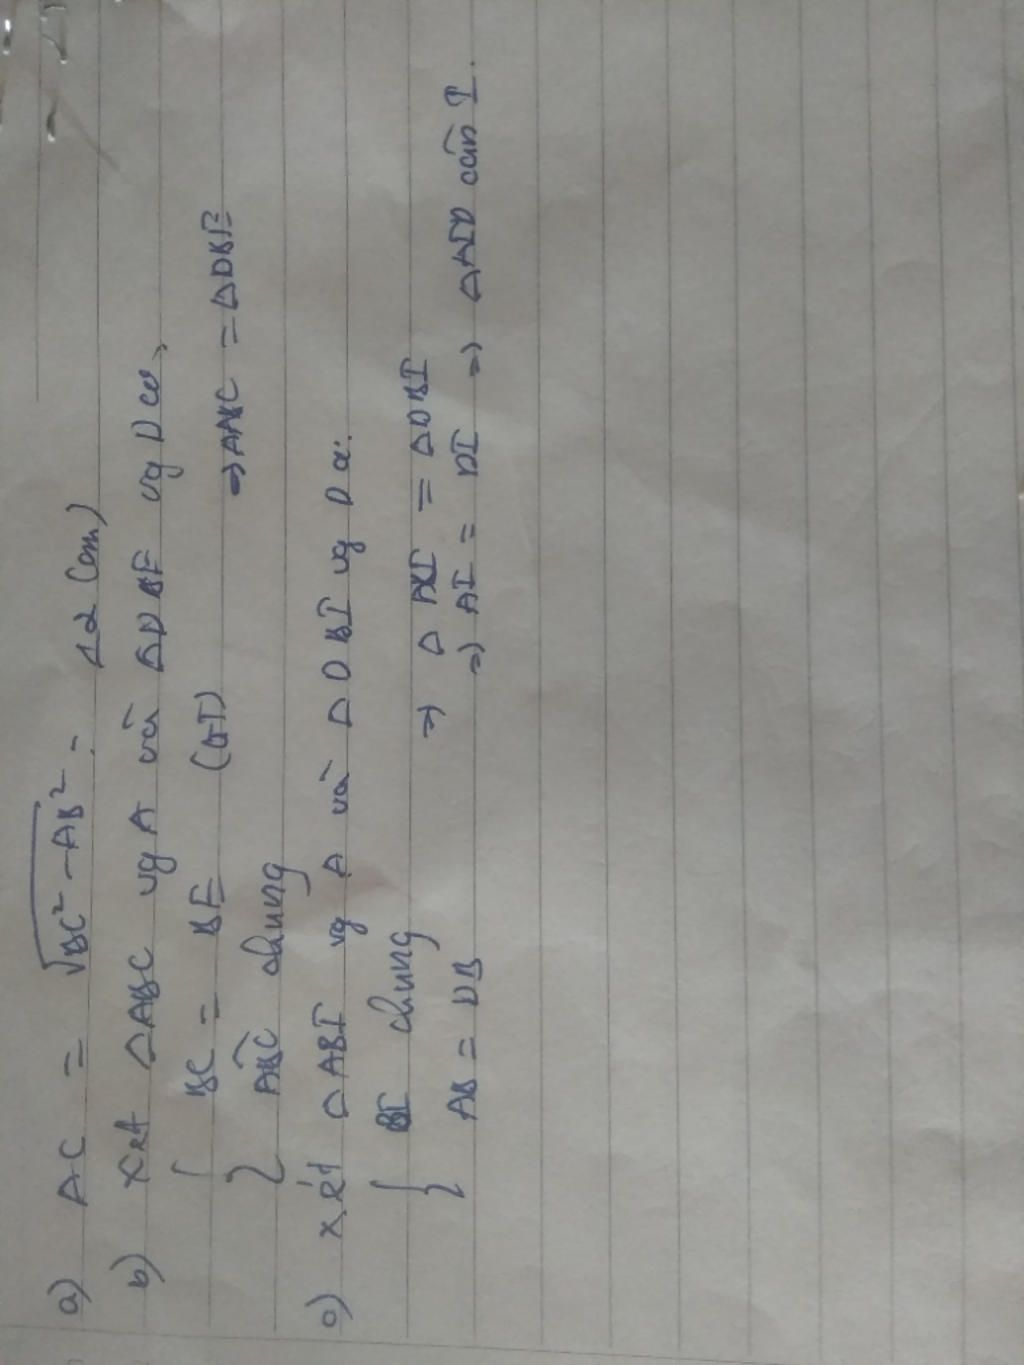 a) AC = √BC² - AB² = 12 (cm)
b) Xét △ABC vg A và △DBE vg D có,
{ BC = BE (GT)
ABC chung
⇒ △ABC = △DBE
c) Xét △ABI vg A và △DBI vg D có:
{ BI chung
AB = DB
⇒ △ABI = △DBI
⇒ AI = DI ⇒ △AID cân I.